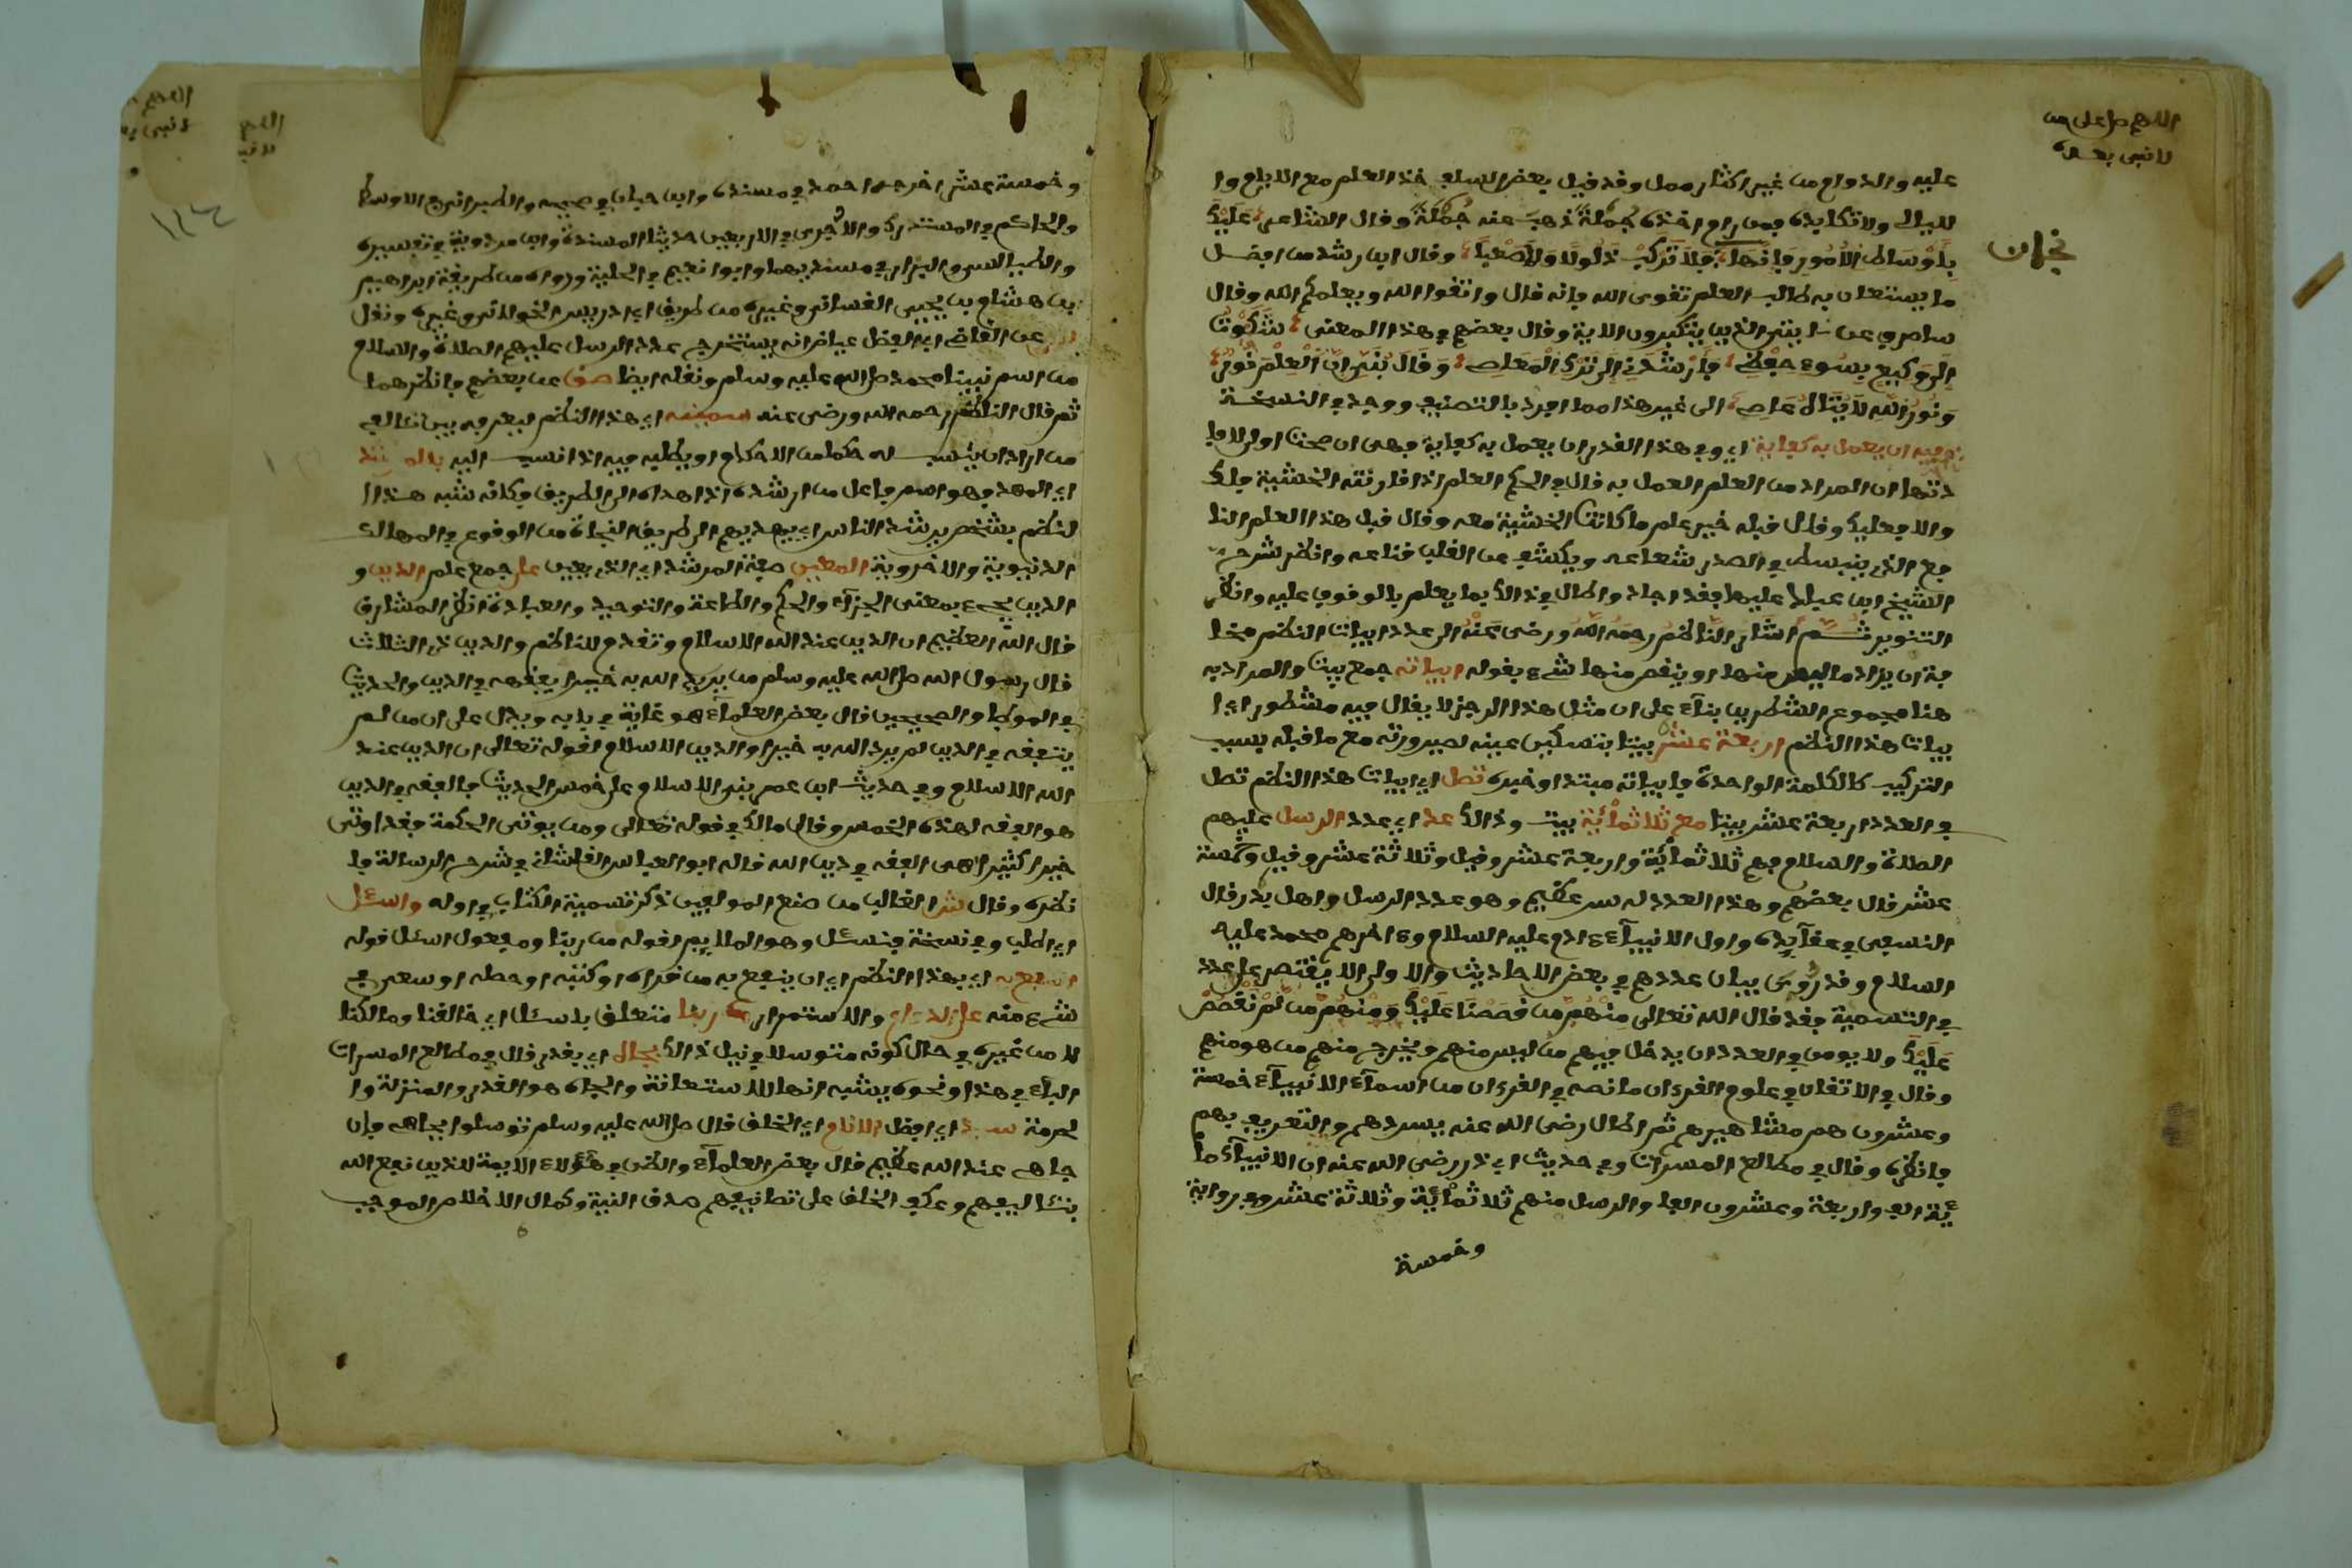 اللهم صل على من
لا نبي بعده
عليه والدوام من غير اكثار ممل وقد قيل يعض السلف خذ العلم مع الايام وا
لليالي ولا تكابده فمن رام اخذه جُملةً ذهب عنه جُملَةً وقال الشاعر عَلَيْكَ
بِأَوْسَاطِ الْأُمُورِ فَإِنَّهَا نجاة فَلَا تَرْكَبْ ذَلُولًا وَلَا صَعْبَا وقال ابن رشد من افضل
ما يستعان به طالب العلم تقوى الله فانه قال واتقوا الله ويعلمكم الله وقال
ساصرف عن ءايتي الذين يتكبرون الاية وقال بعضهم في هذا المعنى شَكَوْتُ
إِلَى وَكِيعٍ سُوءَ حِفْظِي فَأَرْشَدَنِي إِلَى تَرْكِ الْمَعَاصِي وَقَالَ بُنَيَّ إِنَّ الْعِلْمَ نُورٌ
وَنُورُ اللَّهِ لَا يُنَالُ عَاصِ الى غير هذا مما افرد بالتصنيف ووجد في النسخة
وفيه ان يعمل به كفاية اي وفي هذا القدر ان يعمل به كفاية فهي ان صحت اولى لافا
دتها ان المراد من العلم العمل به قال في الحكم العلم اذا قارنته الخشية فلك
والا فعليك وقال قبله خير علم ما كانت الخشية معه وقال قبل هذا العلم النا
فع الذي ينبسط في الصدر شعاعه ويكشف عن القلب قناعه وانظر شرح
الشيخ ابن عباد عليها فقد اجاد واطال في ذلك بما يعلم بالوقوف عليه وانظر
التنوير ثُمَّ اشَارَ النَّاظِمُ رحمهُ اللَّهُ ورضى عَنْهُ الى عدد ابيات النظم مخا
فة ان يزاد ما ليس منها او ينقص منها شيء بقوله ابياته جمع بيت والمراد به
هنا مجموع الشطرين بناء على ان مثل هذا الرجز لا يقال فيه مشطور اي ا
بيات هذا النظم اربعة عشر بيتا بتسكين عينه لصيرورته مع ما قبله بسبب
التركيب كالكلمة الواحدة فابياته مبتدا وخبره تصل اي ابيات هذا النظم تصل
في العدد اربعة عشر بيتا مع ثلاثمائة بيت وذلك عد اي عدد الرسل عليهم
الصلاة والسلام فهم ثلاثمائة واربعة عشر وقيل وثلاثة عشر وقيل وخمسة
عشر قال بعضهم وهذا العدد له سر عظيم وهو عدد الرسل واهل بدر قال
النسفي في عقآيده واول الانبيآء ءادم عليه السلام وءاخرهم محمد عليه
السلام وقد رُوِىَ بيان عددهم في بعض الاحاديث والاولى الا يقتصر على عدد
في التسمية فقد قال الله تعالى مِنْهُم مَّن قَصَصْنَا عَلَيْكَ وَمِنْهُم مَّن لَّمْ نَقْصُصْ
عَلَيْكَ ولا يومن في العدد ان يدخل فيهم من ليس منهم ويخرج منهم من هو منهم
وقال في الاتقان في علوم القرءان ما نصه في القرءان من اسمآء الانبيآء خمسة
وعشرون هم مشاهيرهم ثم اطال رضى الله عنه بسردهم والتعريف بهم
فانظره وقال في مطالع المسرات وفي حديث ابي ذر رضي الله عنه ان الانبيآء ما
ئة الف واربعة وعشرون الفا والرسل منهم ثلاثمائة وثلاثة عشر وفي رواية
وخمسة
وخمسة عشر اخرجه احمد في مسنده وابن حبان في صحيحه والطبراني في الاوسط
والحاكم في المستدرك والآجري في الاربعين حديثا المسندة وابن مردوية في تفسيره
والطيالسي والبزار في مسنديهما وابو نعيم في الحلية ورواه من طريقة ابراهيم
بن هشام بن يحيى الغساني وغيره من طريق ابي ادريس الخولاني وغيره ونقل
عن القاضي ابي الفضل عياض انه يستخرج عدد الرسل عليهم الصلاة والسلام
من اسم نبينا محمد صلى الله عليه وسلم ونقله ايضا عن بعضهم فانظرهما
ثم قال الناظم رحمه الله ورضى عنه سميته اي هذا النظم ليعرف به بين تئاليف
من اراد ان ينسب له حكما من الاحكام او يطلبه فيه اذا نسب اليه بالمرشد
اي المهدي وهو اسم فاعل من ارشده اذا هداه الى الطريق وكانه شبه هذا ا
لنظم بشخص يرشد الناس اي يهديهم الى طريق النجاة من الوقوع في المهالك
الدنيوية والاخروية المعين صفة المرشد اي الذي يعين على جمع علم الدين و
الدين يجيء بمعنى الجزآء والحكم والطاعة والتوحيد والعبادة انظر المشارق
قال الله العظيم ان الدين عند الله الاسلام وتقدم للناظم والدين ذي الثلاث
قال رسول الله صلى الله عليه وسلم من يريد الله به خيرا يفقهه في الدين والحديث
في الموطإ والصحيحين قال بعض العلمآء هو غاية في بابه ويدل على ان من لم
يتفقه في الدين لم يرد الله به خيرا والدين الاسلام لقوله تعالى ان الدين عند
الله الاسلام وفي حديث ابن عمر بني الاسلام على خمس الحديث فالفقه في الدين
هو الفقه لهذه الخمس وقال مالك في قوله تعالى ومن يوتى الحكمة فقد اوتي
خيرا كثيرا هي الفقه في دين الله قاله ابو العباس القلشاني في شرح الرسالة فا
نظره وقال الغالب من صنع المولفين ذكر تسمية الكتاب في اوله واسئل
اي اطلب وفي نسخة فنسئل وهو الملايم لقوله من ربنا ومفعول اسئل قوله
النفع به اي بهذا النظم اي ان ينفع به من قراه او كتبه او حصله او سعى في
شيء منه على الدوام والاستمرار من ربنا متعلق باسئل اي خالقنا ومالكنا
لا من غيره في حال كونه متوسلا في نيل ذلك بجاه اي بقدر قال في مطالع المسرات
البآء في هذا ونحوه يشبه انها للاستعانة والجاه هو القدر والمنزلة وا
لحرمة سيد اي افضل الانام اي الخلق قال صلى الله عليه وسلم توسلوا بجاهي فإن
جاهي عند الله عظيم قال بعض العلمآء والظن في هؤلاء الايمة الذين نفع الله
بتئاليفهم وعكف الخلق على تصانيفهم صدق النية وكمال الاخلاص الموجب